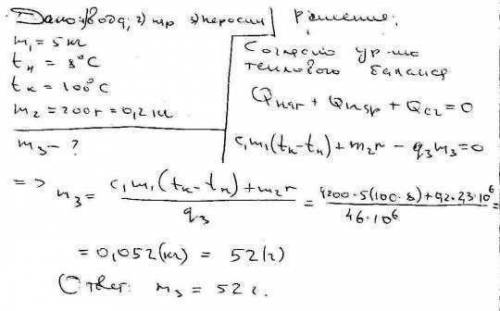 Дано: 1) вода; 2) пар 3) керосин
m₁ = 5 кг
tн = 8°C
tк = 100°C
m₂ = 200г = 0,2 кг
m₃ - ?
Решение:
Согласно ур-ию
теплового баланса
Qнаг + Qисп + Qсг = 0
c₁m₁(tк - tн) + m₂r - q₃m₃ = 0
=> m₃ = (c₁m₁(tк - tн) + m₂r) / q₃ = (4200·5(100-8) + 0,2·2,3·10⁶) / (46·10⁶) =
= 0,052(кг) = 52(г)
Ответ: m₃ = 52г.